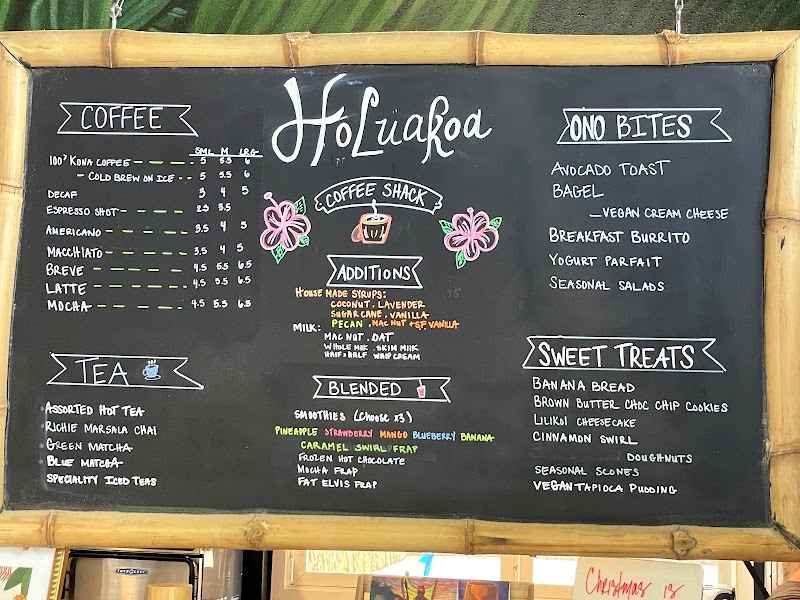 HoLuaKoa
COFFEE SHACK
COFFEE
SML M LRG
100% KONA COFFEE 5 5.5 6
- COLD BREW ON ICE 5 5.5 6
DECAF 3 4 5
ESPRESSO SHOT 2.5 3.5
AMERICANO 3.5 4 5
MACCHIATO 3.5 4 5
BREVE 4.5 5.5 6.5
LATTE 4.5 5.5 6.5
MOCHA 4.5 5.5 6.5
TEA
ASSORTED HOT TEA
RICHIE MARSALA CHAI
GREEN MATCHA
BLUE MATCHA
SPECIALITY ICED TEAS
ADDITIONS
HOUSE MADE SYRUPS:
COCONUT . LAVENDER
SUGAR CANE . VANILLA
PECAN . MAC NUT + SF VANILLA
MILK:
MAC NUT . OAT
WHOLE MILK . SKIM MILK
HALF & HALF WHIP CREAM
BLENDED
SMOOTHIES (CHOOSE x3)
PINEAPPLE STRAWBERRY MANGO BLUEBERRY BANANA
CARAMEL SWIRL FRAP
FROZEN HOT CHOCOLATE
MOCHA FRAP
FAT ELVIS FRAP
ONO BITES
AVOCADO TOAST
BAGEL
- VEGAN CREAM CHEESE
BREAKFAST BURRITO
YOGURT PARFAIT
SEASONAL SALADS
SWEET TREATS
BANANA BREAD
BROWN BUTTER CHOC CHIP COOKIES
LILIKOI CHEESECAKE
CINNAMON SWIRL
DOUGHNUTS
SEASONAL SCONES
VEGAN TAPIOCA PUDDING
Christmas is